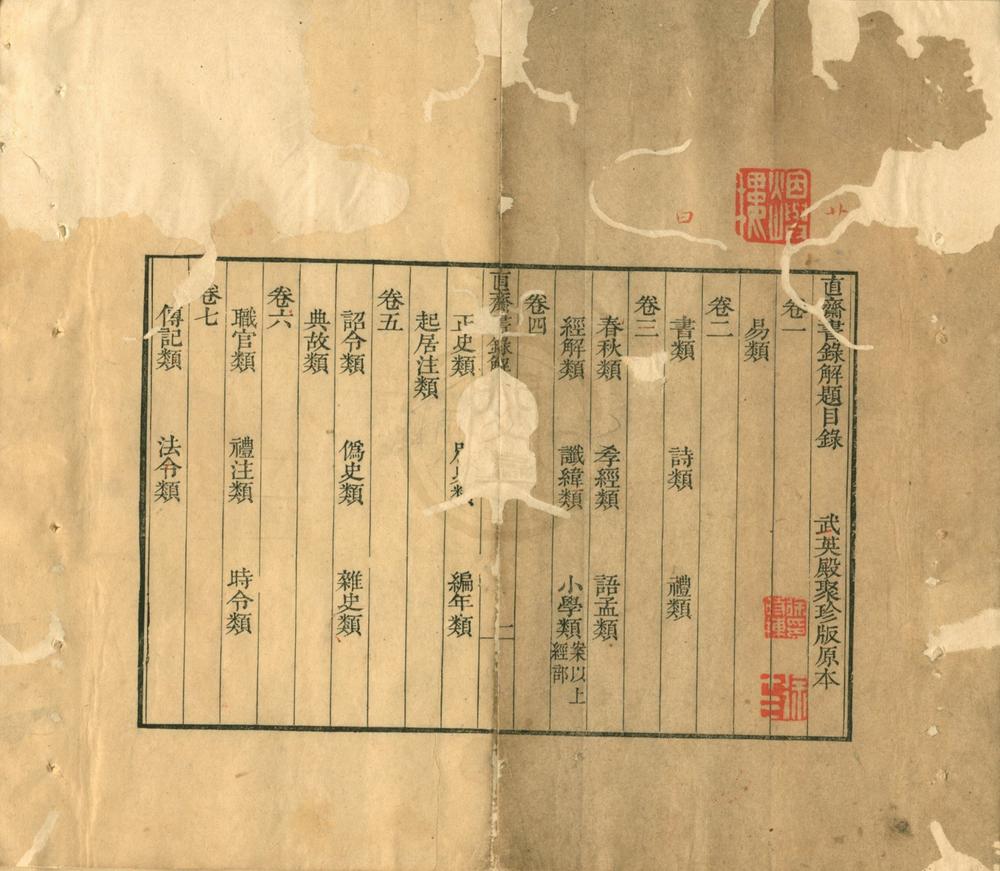 烟嶼樓
直齋書錄解題目錄 武英殿聚珍版原本
卷一
易類
卷二
書類 詩類 禮類
卷三
春秋類 孝經類 語孟類
經解類 讖緯類 小學類 案以上經部
卷四
直齋書錄解 一
正史類 別史類 編年類
起居注類
卷五
詔令類 僞史類 雜史類
典故類
卷六
職官類 禮注類 時令類
卷七
傳記類 法令類